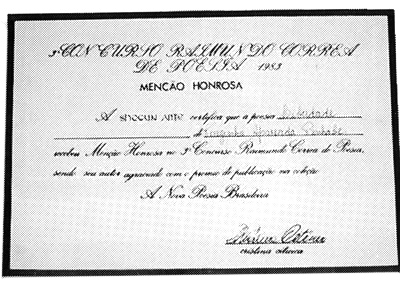 3º CONCURSO RAIMUNDO CORREA
DE POESIA 1983
MENÇÃO HONROSA
A SHOGUN ARTE certifica que a poesia
de Aparecida
recebeu Menção Honrosa no 3º Concurso Raimundo Correa de Poesia,
sendo seu autor agraciado com o premio de publicação na coleção
A Nova Poesia Brasileira
cristina oiticica